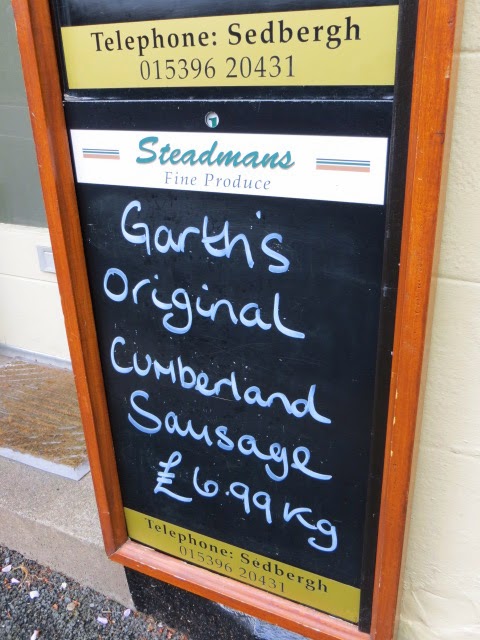 Telephone: Sedbergh
015396 20431
Steadmans
Fine Produce
Garth's
Original
Cumberland
Sausage
£6.99 Kg
Telephone: Sedbergh
015396 20431